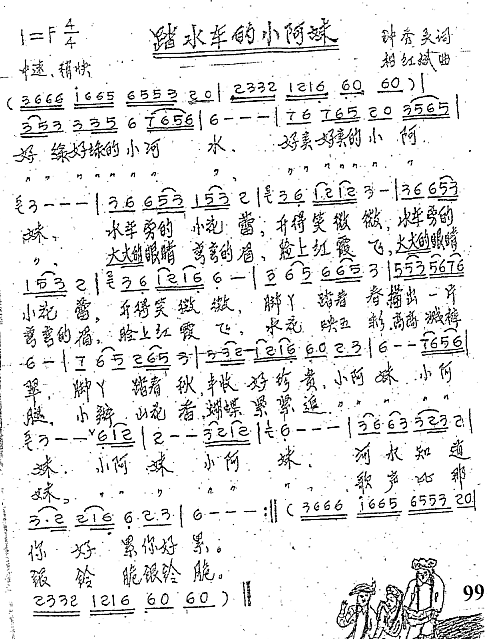 踏水车的小阿妹
1=F 4/4
中速、稍快
钟秀美词
柏红斌曲
(3666 1665 6553 20 | 2332 1216 60 60) |
353 335 6 7656 | 6 - - - | 76 765 20 3565 |
好绿好绿的小河 水, 好美好美的小 阿
3 - - - | 36 653 153 2 | 36 1212 3 - | 36 653
妹, 水车旁的 小花 蕾, 开得笑微 微, 水车旁的
大大的眼睛 弯弯的眉, 脸上红霞 飞, 大大的眼睛
153 2 | 36 1216 6 - | 365 665 3 | 553 5676
小花 蕾, 开得笑微 微, 脚丫 踏着 春 描出一片
弯弯的眉, 脸上红霞 飞, 水花 映五 彩
6 - | 765 265 3 | 332 1216 60 23 | 6 - - 7656 |
翠, 脚丫 踏着 秋, 丰收 好珍贵, 小阿 妹 小阿
腿, 小辫 山花 香, 蝴蝶 紧紧追
3 - - 612 | 2 - - 3212 | 6 - - - | 3663 323 2 |
妹 小阿 妹 小阿 妹, 河水知道
妹, 歌声比那
3·2 216 6·23 | 6 - - - :‖ (3666 1665 6553 20 |
你 好 累你好 累。
银 铃 脆银铃 脆。
2332 1216 60 60) ‖
99